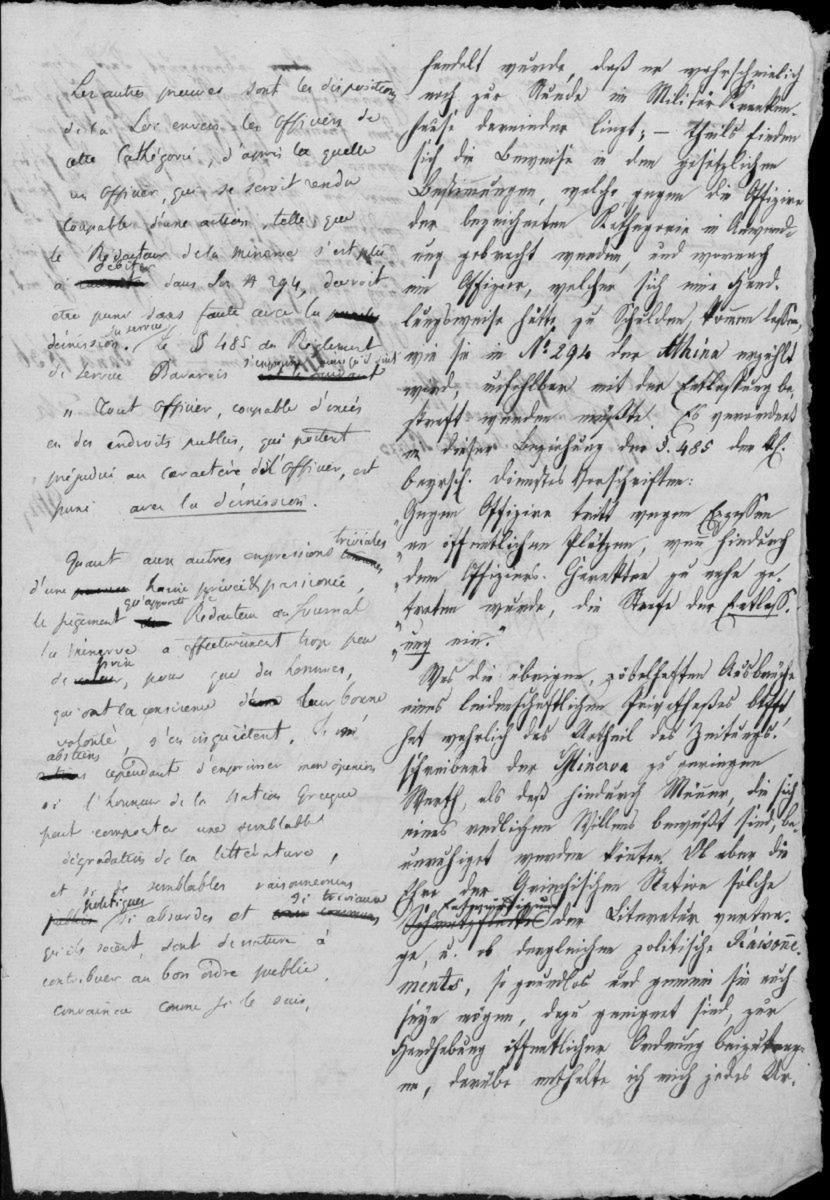 Les autres preuves sont les dispositions
de la Loi envers les Officiers de
cette Cathégorie, d'après la quelle
un Officier, qui se seroit rendu
coupable d'une action, telle, que
le Rédacteur de la minerve s'est plu
à débiter dans son N 294, devroit
etre puni sans faute avec la
démission. Le § 485 du Reglement du service
de service Bavarois s'exprime
„ Tout Officier, coupable d'excès
en des endroits publics, qui portent
préjudice au caractère de l'Officier, est
puni avec la démission.
Quant aux autres expressions triviales
d'une haine privée & passionée,
le jugement qu'apporte le Rédacteur du Journal
la minerve a effectivement trop peu
de prix, pour que des hommes,
qui ont la conscience de leur bonne
volonté, s'en inquiètent. Je m'
abstiens cependant d'exprimer mon opinion
si l'honneur de la Nation Grecque
peut comporter une semblable
dégradation de la littérature,
et si de semblables raisonnemens
politiques si absurdes et si triviaux
qu'ils soient, sont de nature à
contribuer au bon ordre public.
convaincu comme je le suis,
handelt wurde, daß er wahrscheinlich
noch zur Stunde im Militär Kranken-
hause darnieder liegt; – theils finden
sich die Beweise in den gesetzlichen
Bestimmungen, welche gegen die Offizire
der bezeichneten Kathegorie in Anwend-
ung gebracht werden, und wornach
ein Offizier, welcher sich eine Hand-
lungsweise hätte zu Schulden kommen lassen,
wie sie in No 294 der Athina erzählt
wird, unfehlbar mit der Entlassung be-
straft werden müßte. Es verordnet
in dieser Beziehung der §. 485 der K.
bayrsch. Dienstes Vorschriften:
„Gegen Offizire tritt wegen Excessen
„an öffentlichen Plätzen, wenn hiedurch
„dem Offiziers-Charakter zu nahe ge-
„treten wurde, die Strafe der Entlass-
„ung ein."
Was die übrigen, pöbelhaften Ausbrüche
eines leidenschaftlichen Privathaßes betrifft,
hat wahrlich das Urtheil des Zeitungs-
schreibers der Minerva zu geringen
Werth, als daß hiedurch Männer, die sich
eines redlichen Willens bewußt sind, be-
unruhiget werden könten. Ob aber die
Ehre der Griechischen Nation solche
Entwürdigung der Literatur vertra-
ge, u. ob dergleichen politische Räisonne-
ments, so grundlos und gemein sie auch
seyn mögen, dazu geeignet sind, zur
Handhabung öffentlicher Ordnung beizutrag-
en, darüber enthalte ich mich jedes Ur-